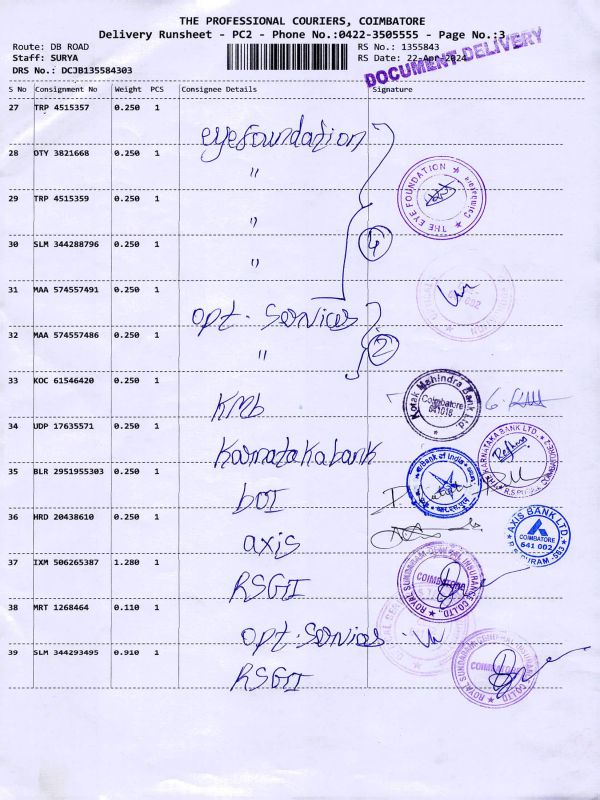 THE PROFESSIONAL COURIERS, COIMBATORE
Delivery Runsheet - PC2 - Phone No.:0422-3505555 - Page No.:3
Route: DB ROAD RS No.: 1355843
Staff: SURYA RS Date: 22-Apr-2024
DRS No.: DCJB135584303
DOCUMENT DELIVERY
S No Consignment No Weight PCS Consignee Details Signature
27 TRP 4515357 0.250 1 eyefoundation
28 OTY 3821668 0.250 1 "
THE EYE FOUNDATION ★ Coimbatore ★
29 TRP 4515359 0.250 1 "
30 SLM 344288796 0.250 1 "
4
31 MAA 574557491 0.250 1 opt. Services
32 MAA 574557486 0.250 1 "
2
33 KOC 61546420 0.250 1 KMb
Kotak Mahindra Bank Ltd.
Coimbatore
641018
34 UDP 17635571 0.250 1 Karnatakabank
KARNATAKA BANK LTD.
35 BLR 2951955303 0.250 1 bOI
bank of India
36 HRD 20438610 0.250 1 axis
AXIS BANK LTD.
COIMBATORE
641 002
37 IXM 506265387 1.280 1 RSGI
ROYAL SUNDARAM GENERAL INSURANCE CO LTD.
COIMBATORE
38 MRT 1268464 0.110 1 opt. Services
39 SLM 344293495 0.910 1 RSGI
ROYAL SUNDARAM GENERAL INSURANCE CO LTD.